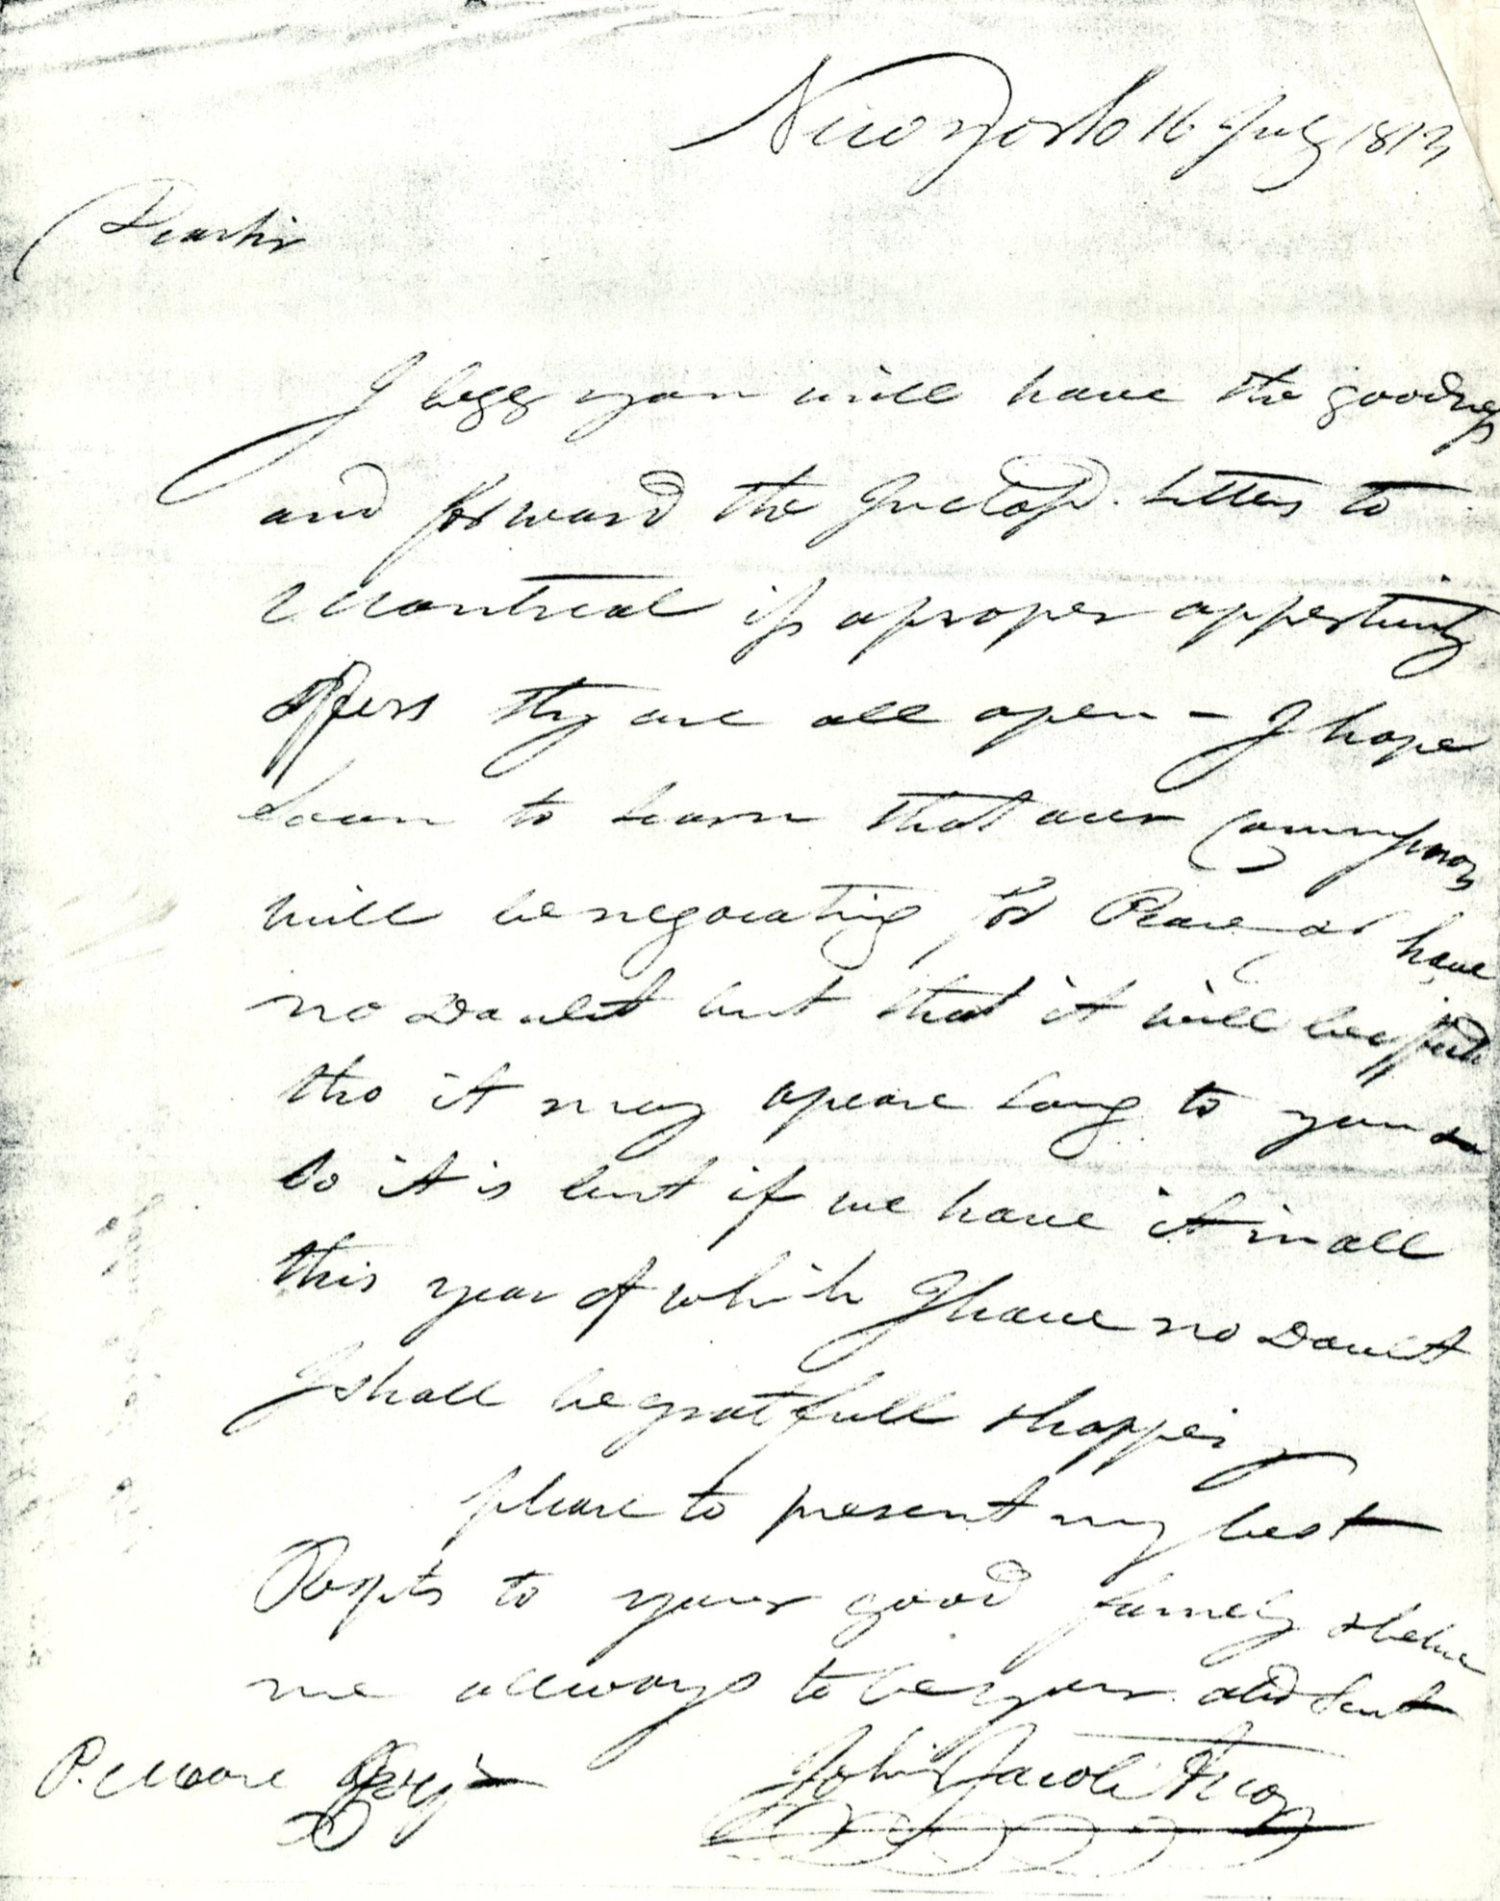 New York 16 July 1813
Dear Sir
I begg you will have the goodness
and forward the Inclosd. Letters to
Montreal if a proper oppertunity
offers thy are all open – I hope
Soon to Learn that our
will be negociating for Peace I have
no Doubt but that it will be
tho it may apeare Long to you &
So it is but if we have it in all
this year of which I have no Doubt
I shall be gratfull & happy
please to present my best
Respts to your good famely & beleve
me allways to be your obd Servt
P. Moore Esqr John Jacob Astor